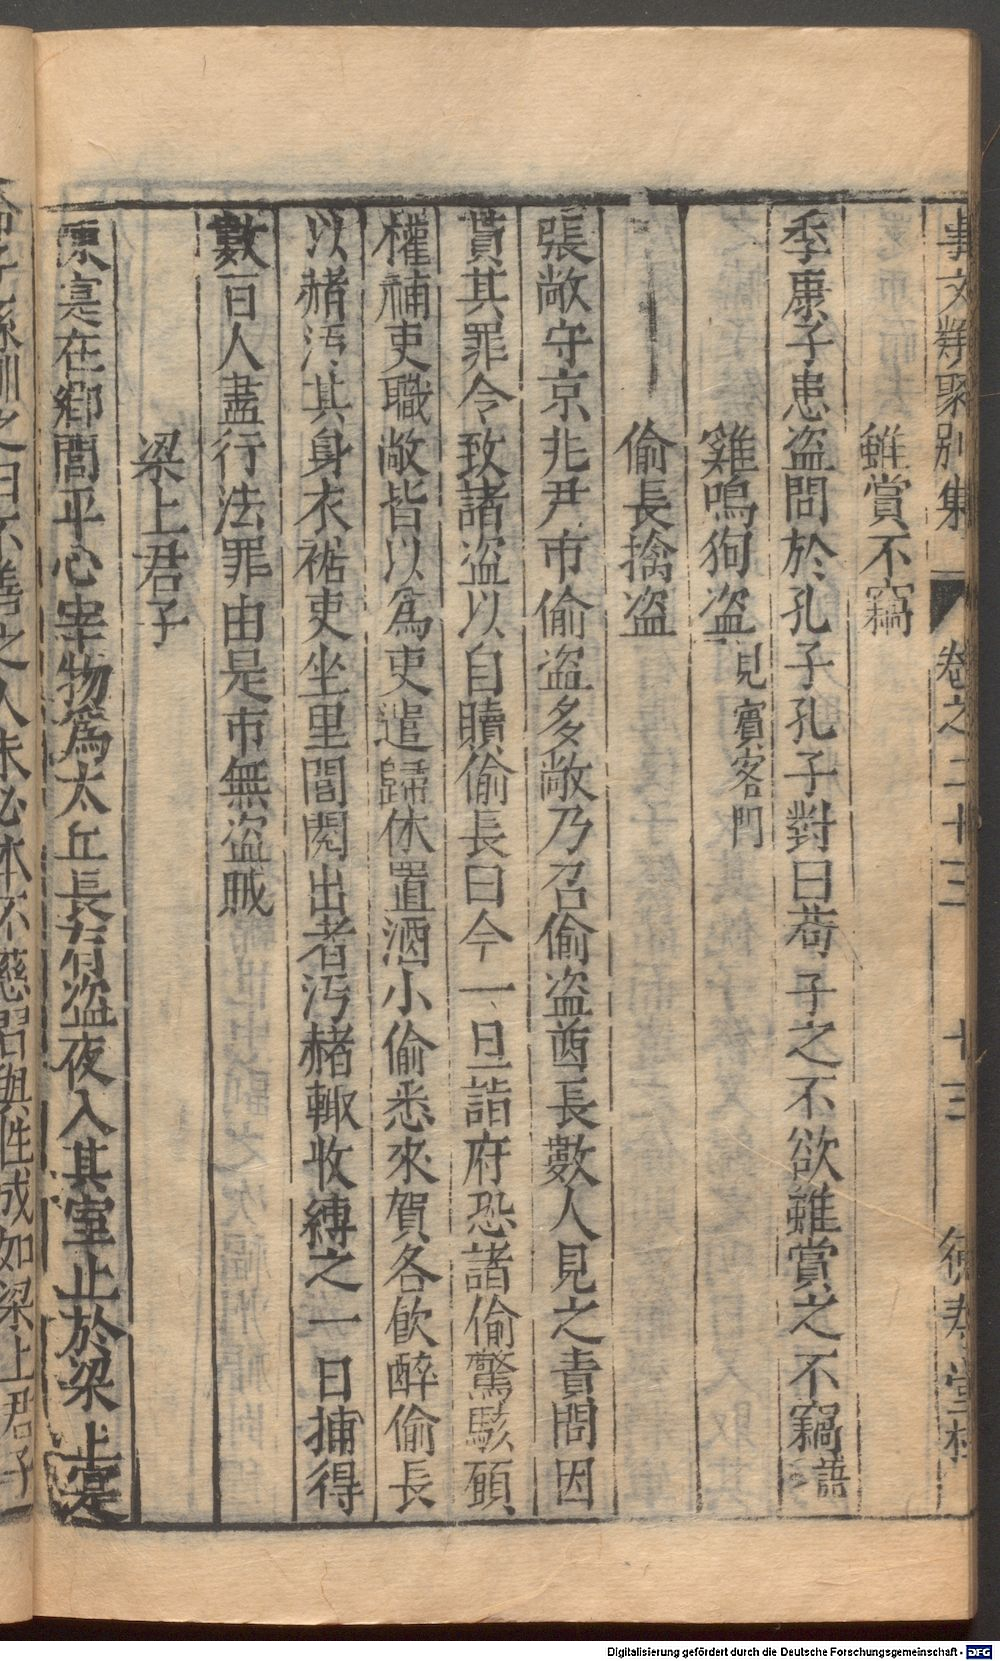 事文類聚別集 卷之二十三 十三 德壽堂梓
雖賞不竊
季康子患盗問於孔子孔子對曰苟子之不欲雖賞之不竊語
雞鳴狗盗見賓客門
偷長擒盗
張敞守京兆尹市偷盗多敞乃召偷盗酋長數人見之責問因
貰其罪令致諸盗以自贖偷長曰今一旦詣府恐諸偷驚駭願
權補吏職敞皆以爲吏遣歸休置酒小偷悉來賀各飲醉偷長
以赭汚其身衣裾吏坐里閭閱出者汚赭輙收縛之一日捕得
數百人盡行法罪由是市無盗賊
梁上君子
陳寔在鄉閭平心率物爲太丘長有盗夜入其室止於梁上寔
命子孫訓之曰不善之人未必本不惡習與性成如梁上君子